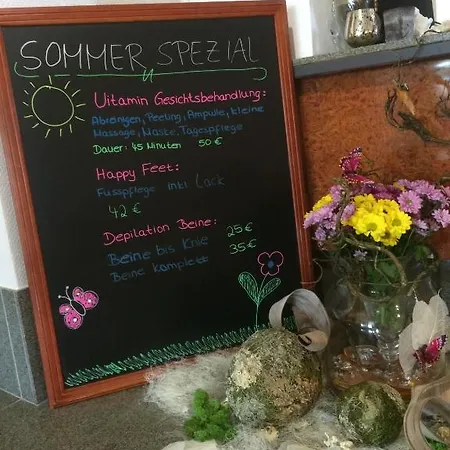 SOMMER SPEZIAL
Vitamin Gesichtsbehandlung:
Abreinigen, Peeling, Ampulle, kleine
Massage, Maske, Tagespflege
Dauer: 45 Minuten 50 €
Happy Feet:
Fusspflege inkl Lack
42 €
Depilation Beine:
Beine bis Knie 25 €
Beine komplett 35 €